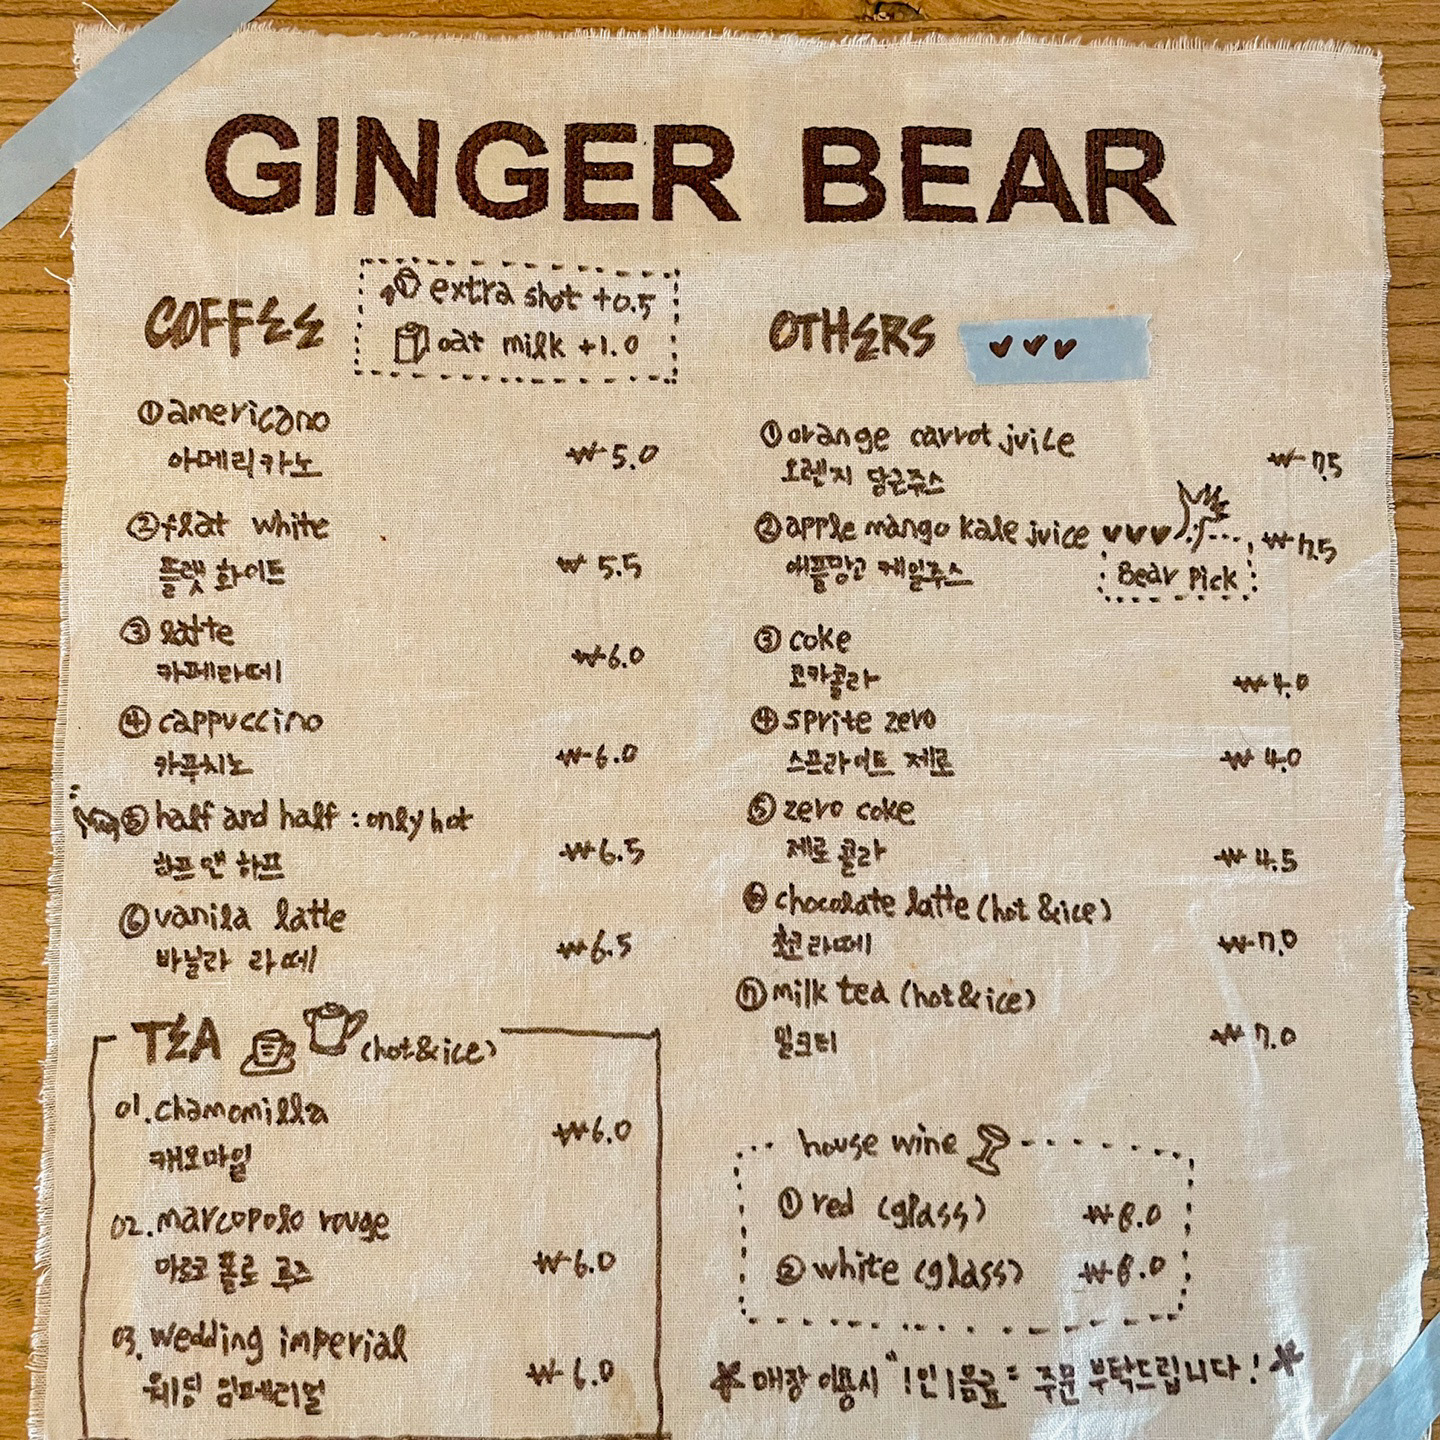 GINGER BEAR
COFFEE
extra shot +0.5
oat milk +1.0
① americano
아메리카노
₩ 5.0
② flat white
플랫 화이트
₩ 5.5
③ latte
카페라떼
₩ 6.0
④ cappuccino
카푸치노
₩ 6.0
⑤ half and half : only hot
하프 앤 하프
₩ 6.5
⑥ vanila latte
바닐라 라떼
₩ 6.5
TEA (hot & ice)
01. chamomilla
캐모마일
₩ 6.0
02. marcopolo rouge
마르코 폴로 루즈
₩ 6.0
03. wedding imperial
웨딩 임페리얼
₩ 6.0
OTHERS
① orange carrot juice
오렌지 당근쥬스
₩ 7.5
② apple mango kale juice
애플망고 케일쥬스
₩ 7.5
Bear Pick
③ coke
코카콜라
₩ 4.0
④ sprite zero
스프라이트 제로
₩ 4.0
⑤ zero coke
제로 콜라
₩ 4.5
⑥ chocolate latte (hot & ice)
초코 라떼
₩ 7.0
⑦ milk tea (hot & ice)
밀크티
₩ 7.0
house wine
① red (glass) ₩ 8.0
② white (glass) ₩ 8.0
* 매장 이용시 "1인 1음료" 주문 부탁드립니다! *